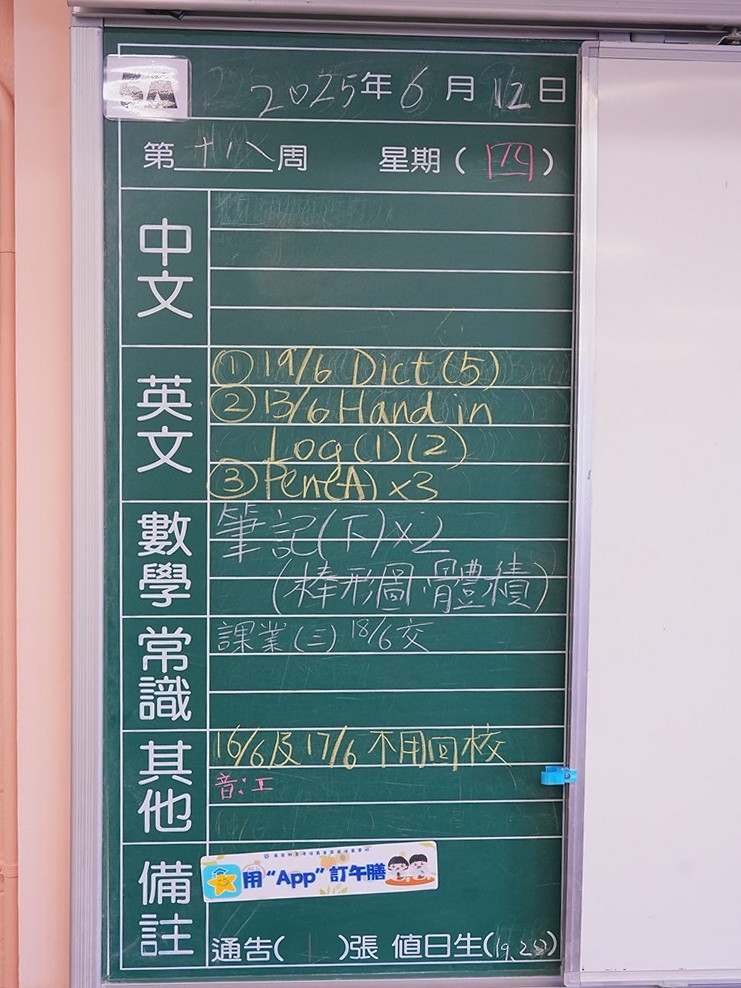 5A
2025年6月12日
第十八周 星期(四)
中文
英文
① 19/6 Dict(5)
② 13/6 Hand in
Log(1)(2)
③ Pen(A) x3
數學
筆記(下)x2
(棒形圖,體積)
常識
課業(三) 18/6交
其他
16/6及17/6不用回校
音:工
備註
用“App”訂午膳
通告( )張 值日生(19,20)